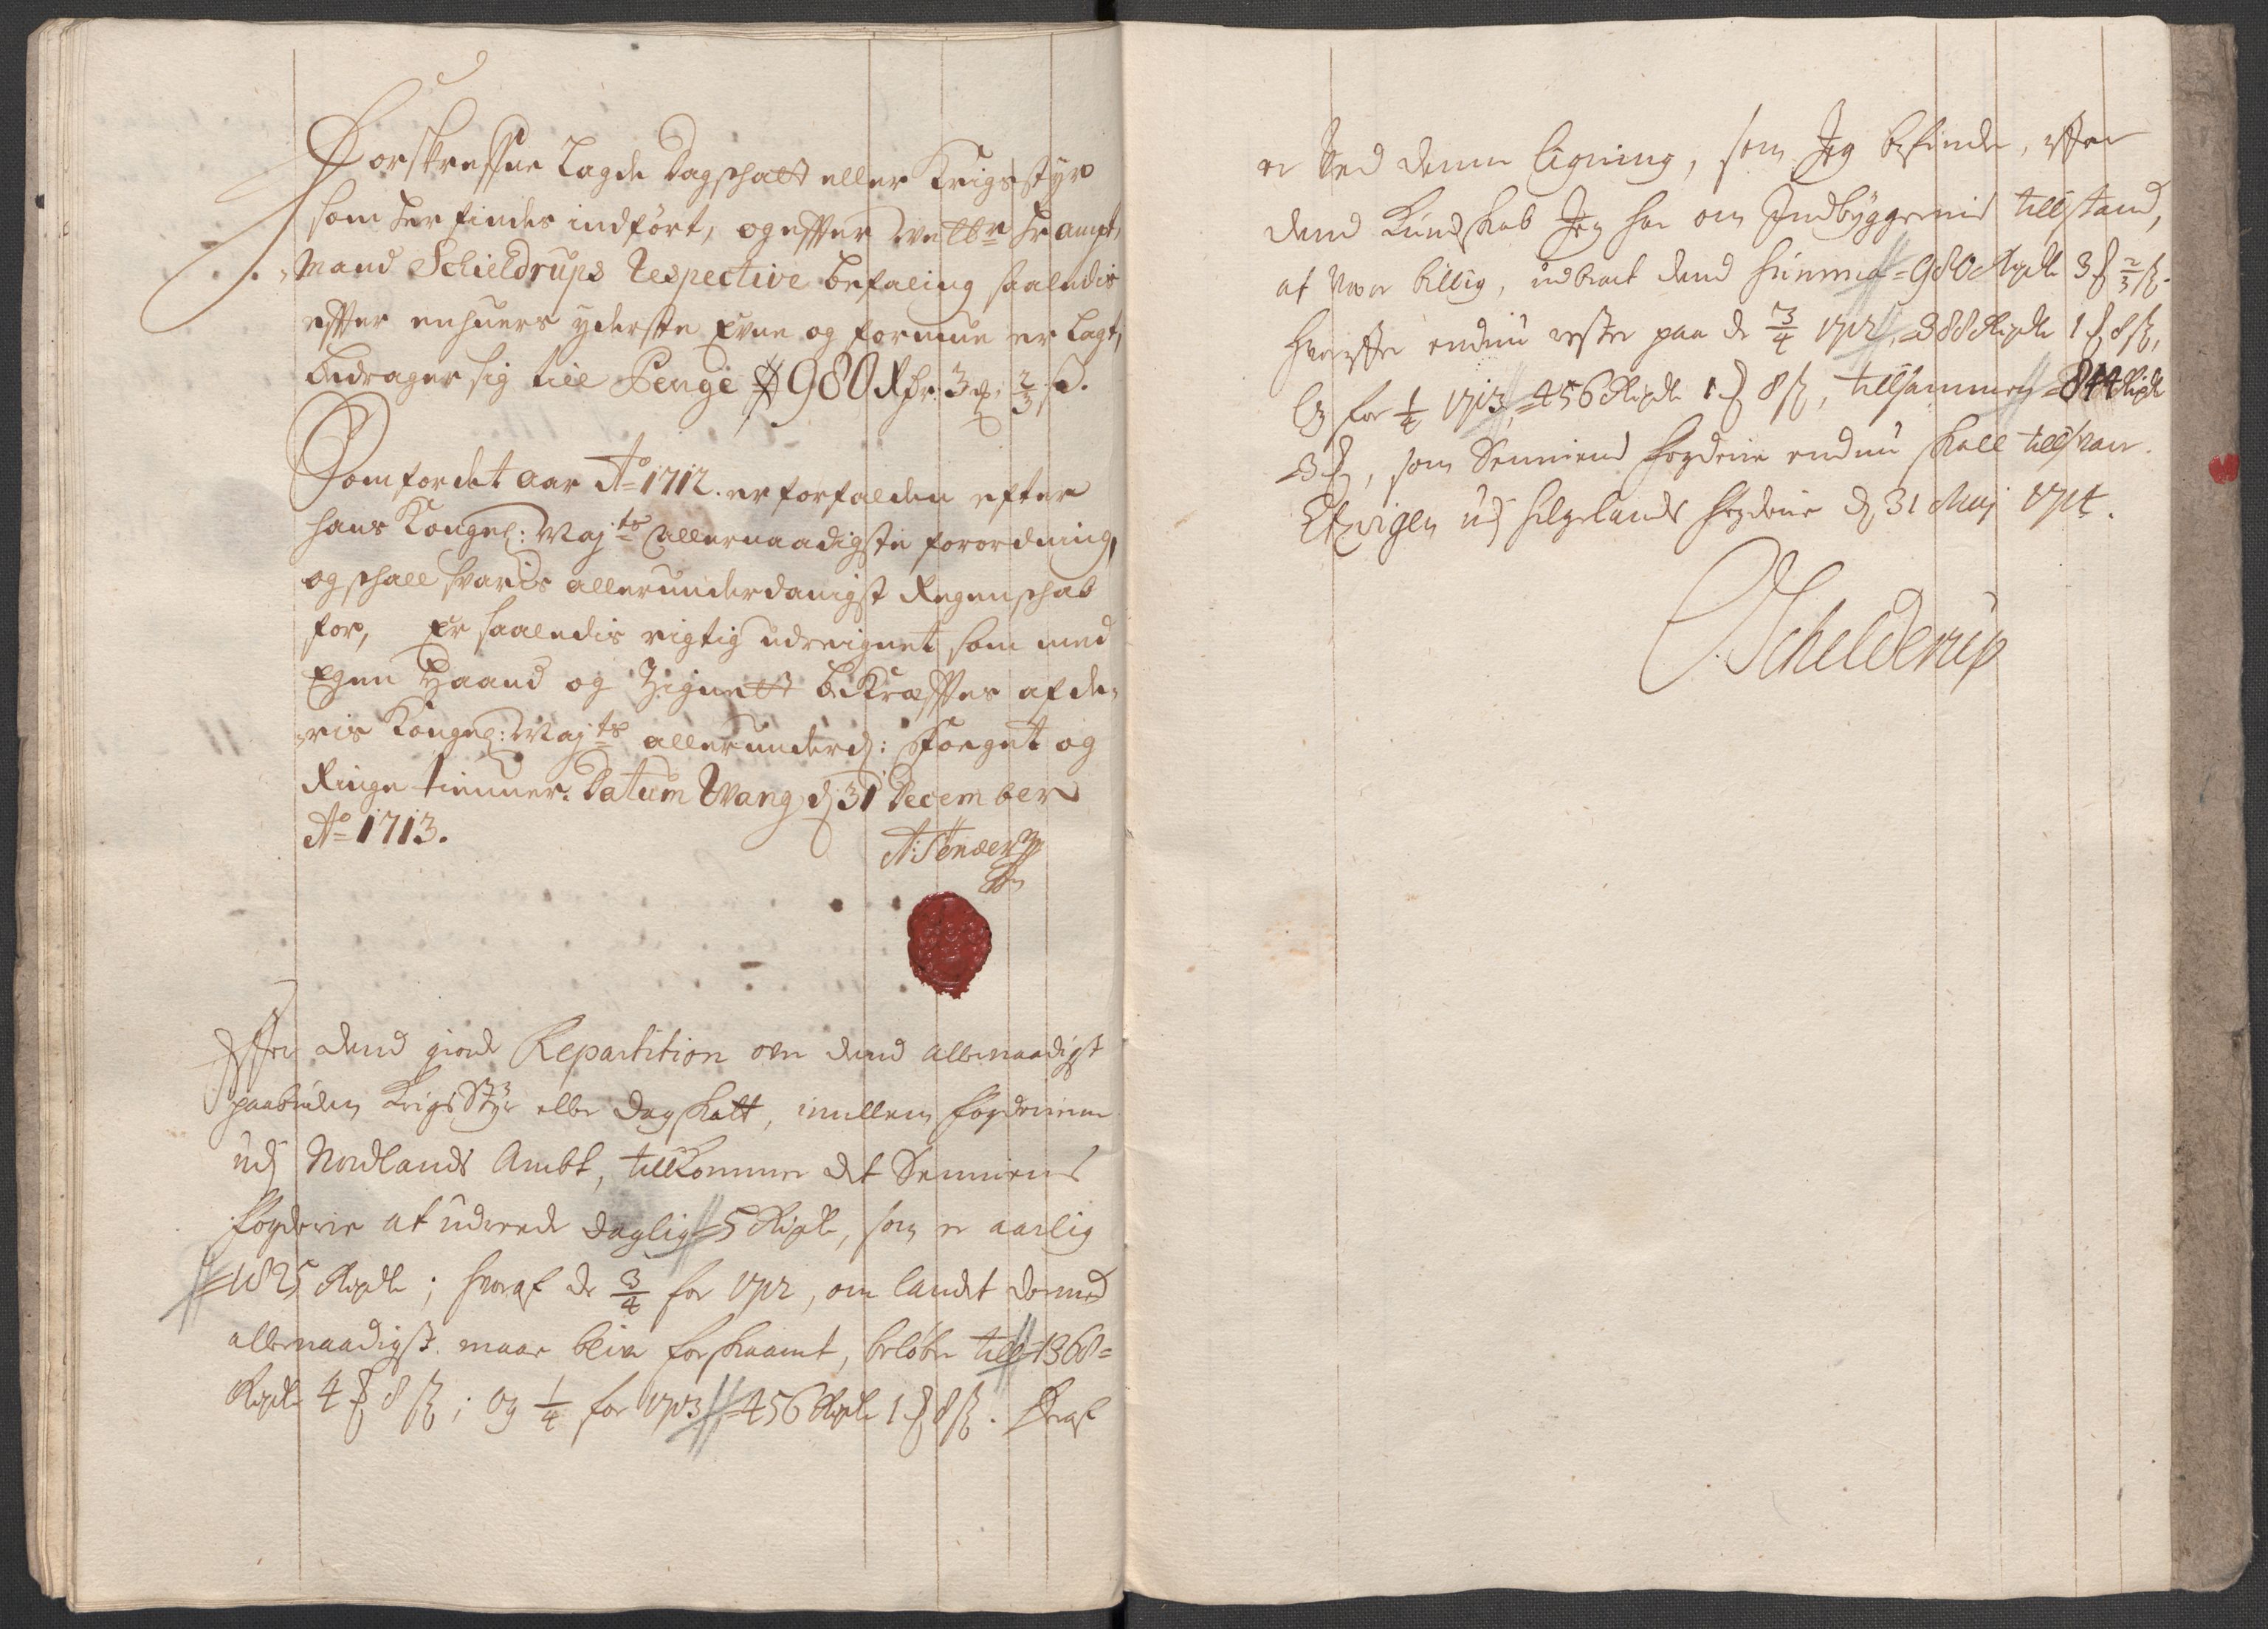 Forskrefne Lagde Dagschatt eller Krigsstÿr
som her findes indført, og effter Welbr Hr ampt,
Mand Schieldrups Respective befaling saaledis
effter enhuers yderste Evne og formue er lagt,
bedrager sig till Penge 980 Rdr 3 ⅔ ß.
Som for det Aar Ao 1712. er forfalden efter
hans Kongel: Majts allernaadigste forordning,
og schall svaris allerunderdanigst Regenschab
for, Er saaledis rigtig udreignet som med
Egen Haand og Zignett bekræfftes af de,
ris Kongel: Majts allerunderd: Foeget og
Ringe tienner. Datum Wang d 31 December
Ao 1713.
A: Tønder
Effter dend giorde Repartition over dend allernaadigst
paabudne Krigs Stÿr eller Dag Skatt, imellem fogderierne
udj Nordlands Ambt, tillkommer det Senniens
fogderie at udreede daglig 5 Rixdlr, som er aarlig
1825 Rixdlr; hvoraf de ¾ for 1712, om landet dermed
allernaadigst maae blive forskaanet, beløber till 1368
Rixdlr 4 8 ß; og ¼ for 1713 456 Rixdlr 1 8 ß. Heraf
er ved denne Ligning, som Jeg befinder, effter
dend Kundskab Jeg har om Indbyggernis tillstand,
at være billig, udbract dend Summa 980 Rixdlr 3 ⅔ ß.
hvoreffter endnu rester paa de ¾ 1712, 388 Rixdlr 1 8 ß,
Og for ¼ 1713, 456 Rixdlr 1 8 ß, tillsammen 844 Rixdlr
3, som Senniens fogderie endnu skall tillsvare.
udj Helgelands fogderie d 31 Maj 1714.
Schelderup